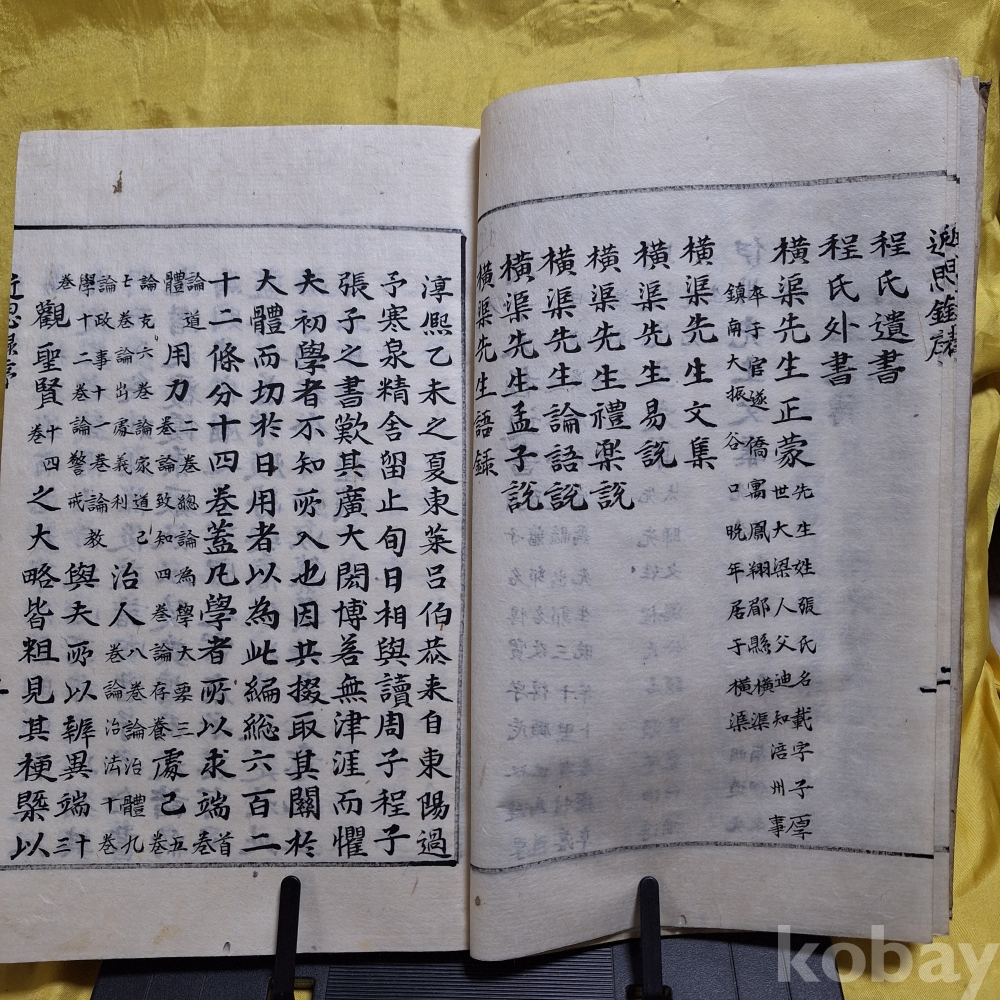 近思錄序
程氏遺書
程氏外書
橫渠先生正蒙 先生姓張氏名載字子厚
世大梁人父迪知涪州事
卒于官遂僑寓鳳翔郿縣橫渠
鎮南大振谷口晚年居于橫渠
橫渠先生文集
橫渠先生易說
橫渠先生禮楽說
橫渠先生論語說
橫渠先生孟子說
橫渠先生語録
二
淳熈乙未之夏東萊呂伯恭来自東陽過
予寒泉精舍留止旬日相與讀周子程子
張子之書歎其廣大閎博若無津涯而懼
夫初學者不知所入也因共掇取其關於
大體而切於日用者以為此編総六百二
十二條分十四卷蓋凡學者所以求端首卷
論道體用力二卷總論為學大要三卷論致知四卷論存養處己五卷
論克己六卷論家道七卷論出處義利治人八卷論治體九卷論治法十卷
論政事十一卷論教學十二卷論警戒與夫所以辨異端十三
卷觀聖賢十四卷之大略皆粗見其梗槩以
近思錄序
kobay